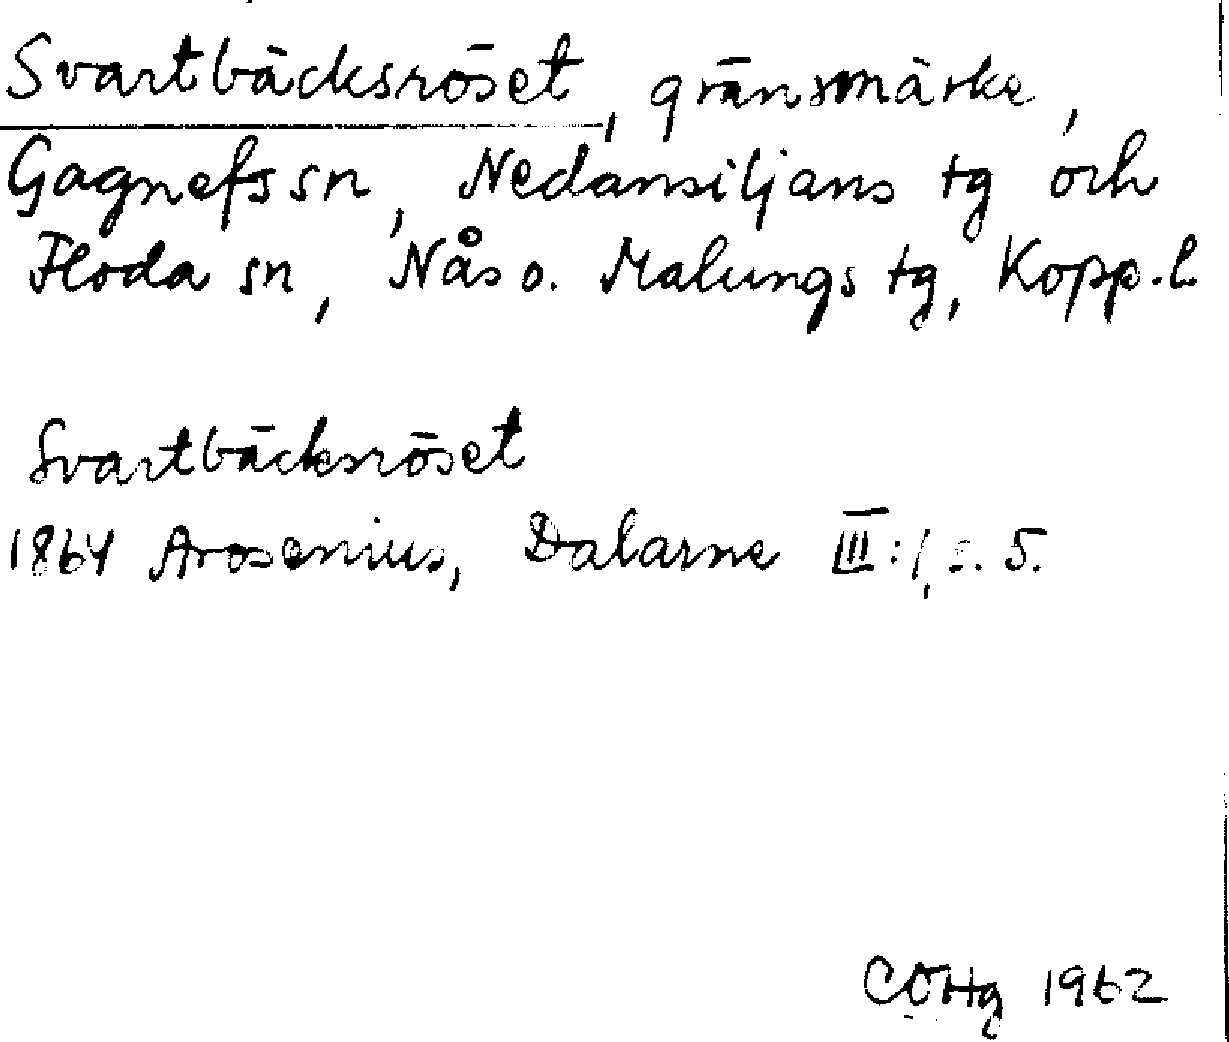 Svartbäcksröset, gränsmärke,
Gagnefs sn, Nedansiljans tg och
Floda sn, Nås o. Malungs tg, Kopp.l.
Svartbäcksröset
1864 Arosenius, Dalarne III:1, s. 5.
COHg 1962